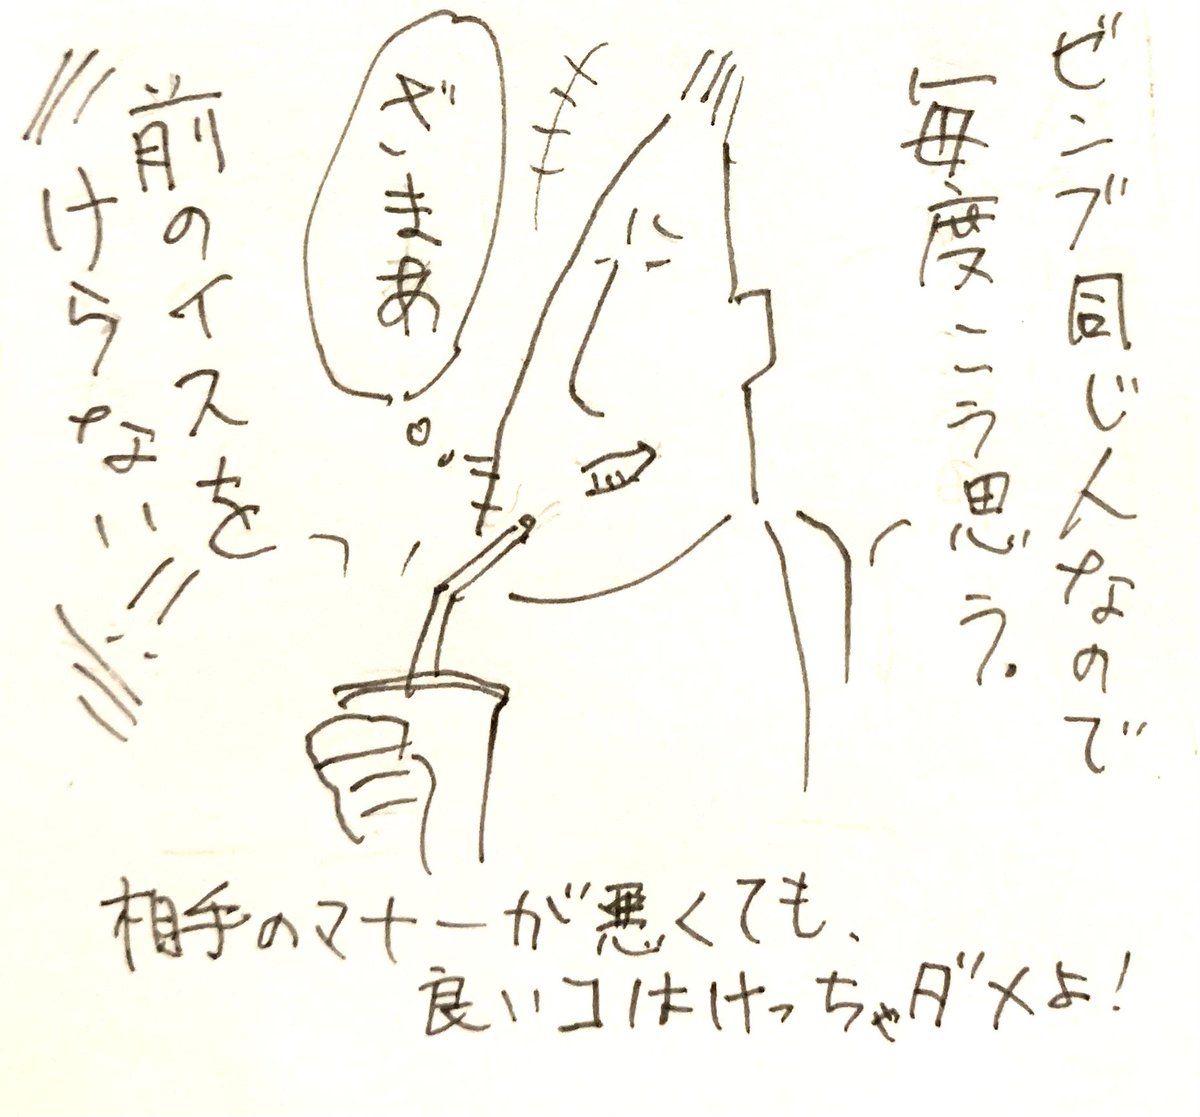 ビンブ同じ人なので
毎度こう思う。
ざまあ
前のイスを
けらない!!
相手のマナーが悪くても、
良いコはけっちゃダメよ!